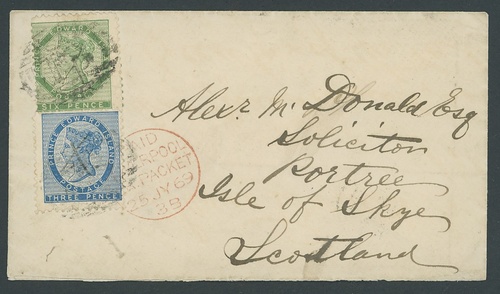 EDWARD
SIX PENCE
PRINCE EDWARD ISLAND
POSTAGE
THREE PENCE
PACKET
25 JY 69
3B
Alexr. Mc Donald Esq
Solicitor
Portree
Isle of Skye
Scotland